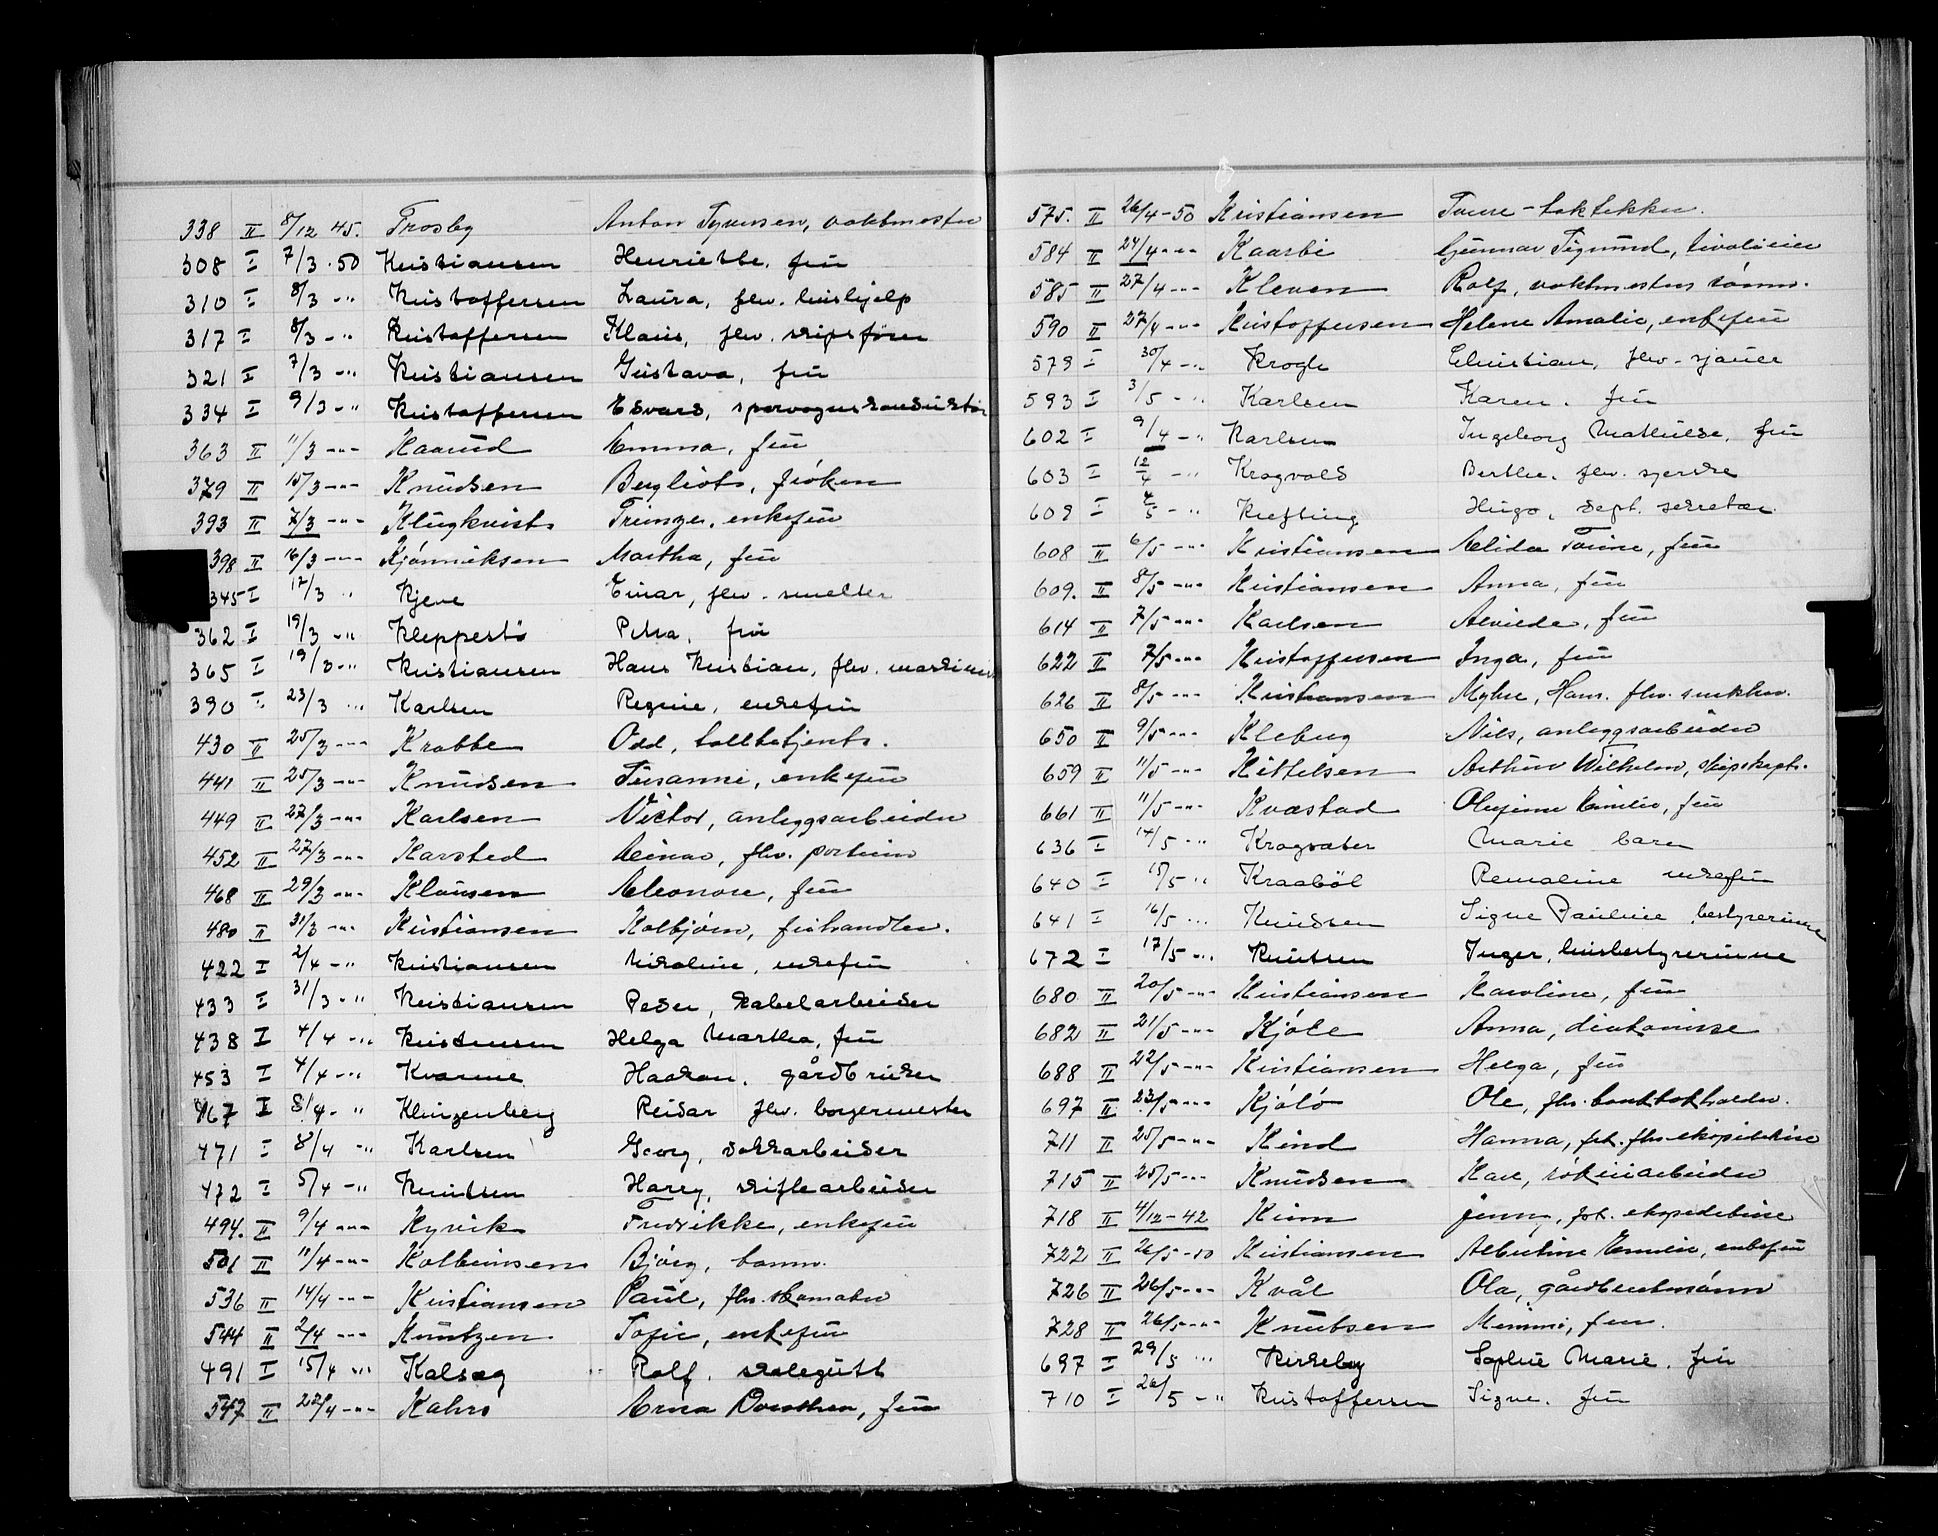 338 II 8/12 45. Frosby Anton vaktmester
308 I 7/3 - 50 Kristiansen Henriette, fru
310 I 8/3 - " Kristoffersen Laura, fhv. hushjelp
317 I 8/3 - " Kristoffersen Klaus, fhv. skipsfører
321 I 7/3 - " Kristiansen Gustava, fru
334 I 9/3 - " Kristoffersen Edvard, sporvognskonduktør
363 II 11/3 -"- Haarud Emma, fru
379 II 15/3 -"- Knudsen Bergliot, frøken
393 II 7/3 -"- Klugkvist enkefru
398 II 16/3 -"- Kjønniksen Martha, fru
345 I 17/3 " Kjeve Einar, fhv. smelter
362 I 19/3 - " Kleppestø Petra, fru
365 I 19/3 - " Kristiansen Hans Kristian, fhv. maskinist
390 I 23/3 " Karlsen Regine, enkefru
430 II 25/3 -"- Krabbe Odd, tollbetjent.
441 II 25/3 -"- Knudsen Susanne, enkefru
449 II 27/3 -"- Karlsen Victor, anleggsarbeider
452 II 27/3 -"- Karsted Einar, fhv. portier
468 II 29/3 -"- Klausen Eleonore, fru
480 II 31/3 -"- Kristiansen Kolbjørn, fiskhandler.
422 I 2/4 - " Kristiansen Nikoline, enkefru
433 I 31/3 - " Kristiansen Peder, kabelarbeider
438 I 4/4 - " Kristensen Helga Martha, fru
453 I 4/4 - " Kvarme Haakon, gårdbruker
467 I 8/4 - " Klingenberg Reidar fhv. borgermester
471 I 8/4 - " Karlsen Georg, dokkarbeider
472 I 5/4 - " Knutsen Harry, skiftearbeider
494. II 9/4 -"- Kyvik Fredrikke, enkefru
501 II 11/4 -"- Kolbeinsen Bjørg, barn.
536 II 14/4 -"- Kristiansen Paul, fhv. skomaker
544 II 2/4 -"- Kuntzen Sofie, enkefru
491 I 15/4 " Kalsæg Rolf, skolegutt
547 II 22/4 -"- Kahrs Erna Dorothea, fru
575. II 26/4 - 50 Kristiansen Toure - taktekker.
584 II 24/4 -"- Kaarbi Gunnar Sigmund, tivolieier
585 II 27/4 -"- Kleven Rolf, vaktmesters sønn.
590 II 27/4 -"- Kristoffersen Helene Amalie, enkefru
573 I 30/4 - " Krogh Christian, fhv. sjauer
593 I 3/5 - " Karlsen Karen, fru
602 I 9/4 - " Karlsen Ingeborg Mathilde, fru
603 I 12/4 - " Kragvold Berthe, fhv. syerske
609 I 4/5 - " Krefting Hugo, dept. sekretær
608 II 6/5 -"- Kristiansen Elida Tomine, fru
609. II 8/5 -"- Kristiansen Anna, fru
614 II 7/5 -"- Karlsen Alvilde, fru
622 II 7/5 -"- Kristoffersen Inga, fru
626 II 8/5 -"- Kristiansen Myhre, Hans. fhv.
650 II 9/5 -"- Kleberg Nils, anleggsarbeider
659 II 11/5 -"- Kittelsen Arthur Wilhelm, skipskapt.
661 II 11/5 -"- Kvastad Olufine Emilie, fru
636 I 14/5 - " Kragsæter Marie barn
640 I 15/5 " Kraabøl Remaline enkefru
641 I 16/5 " Knudsen Signe Pauline bestyrerinne
672 I 17/5 - " Knutsen Inger, husbestyrerinne
680 II 20/5 -"- Kristiansen Karoline, fru
682 II 21/5 -"- Kjøle Anna, diakonisse
688 II 22/5 -"- Kristiansen Helga, fru
697 II 23/5 -"- Kjølø Ole, fhv. bankbokholder.
711 II 25/5 -"- Kind Hanna, frk. fhv. ekspeditrise
715 II 25/5 -"- Knudsen Kare, røkeriarbeider
718 II 4/12 - 42 Kium Jenny, frk. ekspeditrise
722 II 26/5 - 50 Kristiansen Albertine Emilie, enkefru
726 II 26/5 -"- Kvål Ola, gårdbrukersønn
728 II 26/5 -"- Knutsen Mimmi, fru.
697 I 29/5 " Kirkeby Sophie Marie. fru
710 I 26/5 - " Kristoffersen Signe. fru